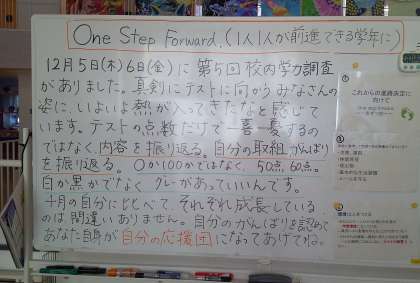 One Step Forward.(1人1人が前進できる学年に)
12月5日(木)6日(金)に第5回校内学力調査
がありました。真剣にテストに向かうみなさんの
姿に、いよいよ熱が入ってきたなと感じて
います。テストの点数だけで一喜一憂するの
ではなく、内容を振り返る。自分の取組、がんばり
を振り返る。0か100かではなく、50点、60点。
白か黒かでなく グレーがあっていいんです。
4月の自分にくらべて、それぞれ成長している
のは間違いありません。自分のがんばりを認めて
あなた自身が自分の応援団になってあげてね。
これからの進路決定に
向けて